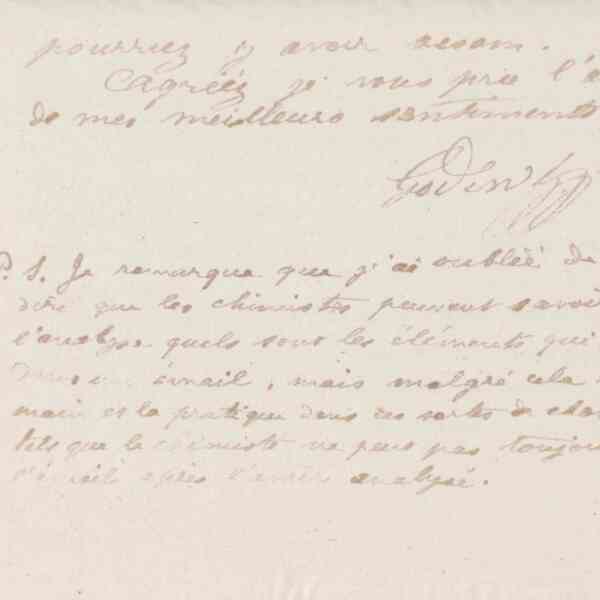 pourriez y avoir
Agréez je vous prie l'a
de mes meilleurs sentiments
Godin
P. S. Je remarque que j'ai oublié de
dire que les chimistes peuvent savoir
l'analyse quels sont les éléments qui
émail, mais malgré cela
main et la pratique dans ces sortes de
tels que le chimiste ne peut pas toujou
l'émail après l'avoir analysé.